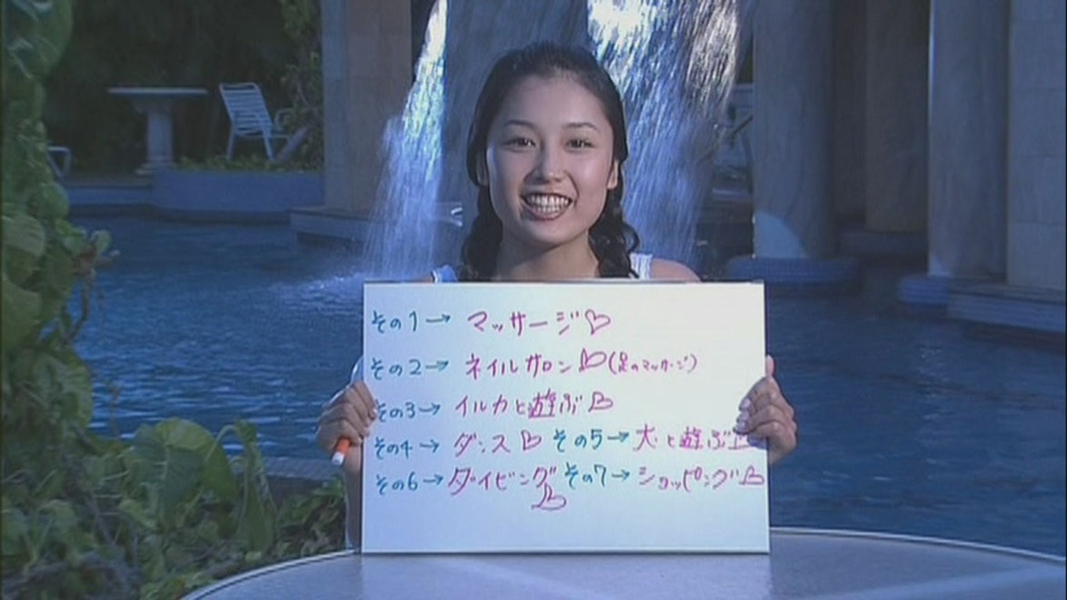 その1→ マッサージ♡
その2→ ネイルサロン♡(足のマッサージ)
その3→ イルカと遊ぶ♡
その4→ ダンス♡ その5→犬と遊ぶ♡
その6→ダイビング♡ その7→ショッピング♡